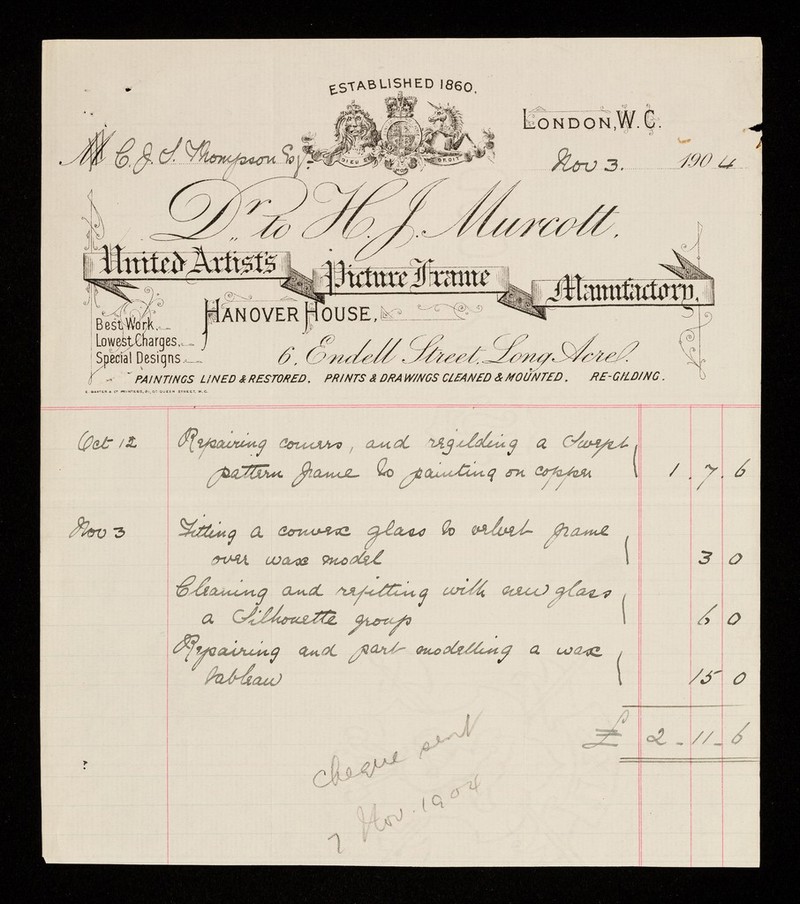 ESTABLISHED 1860.
LONDON, W.C.
C. J. S. Thompson Esqr.
DIEU ET
DROIT
Nov 3. 1904
Dr. to H. J. Murcott.
United Artist's Picture Frame Manufactory.
HANOVER HOUSE,
Best Work.
Lowest Charges.
Special Designs
6. Endell Street. Long Acre.
PAINTINGS LINED & RESTORED. PRINTS & DRAWINGS CLEANED & MOUNTED. RE-GILDING.
Oct 12 Repairing corners, and regilding a Swept
pattern frame to painting on copper 1 . 7 . 6
Nov 3 Fitting a convex glass to velvet frame
over wax model 3 0
Cleaning and refitting with new glass
a Silhouette group 6 0
Repairing and part modelling a wax
tableau 15 0
£ 2 - 11 - 6
cheque sent
7 Nov. 1904